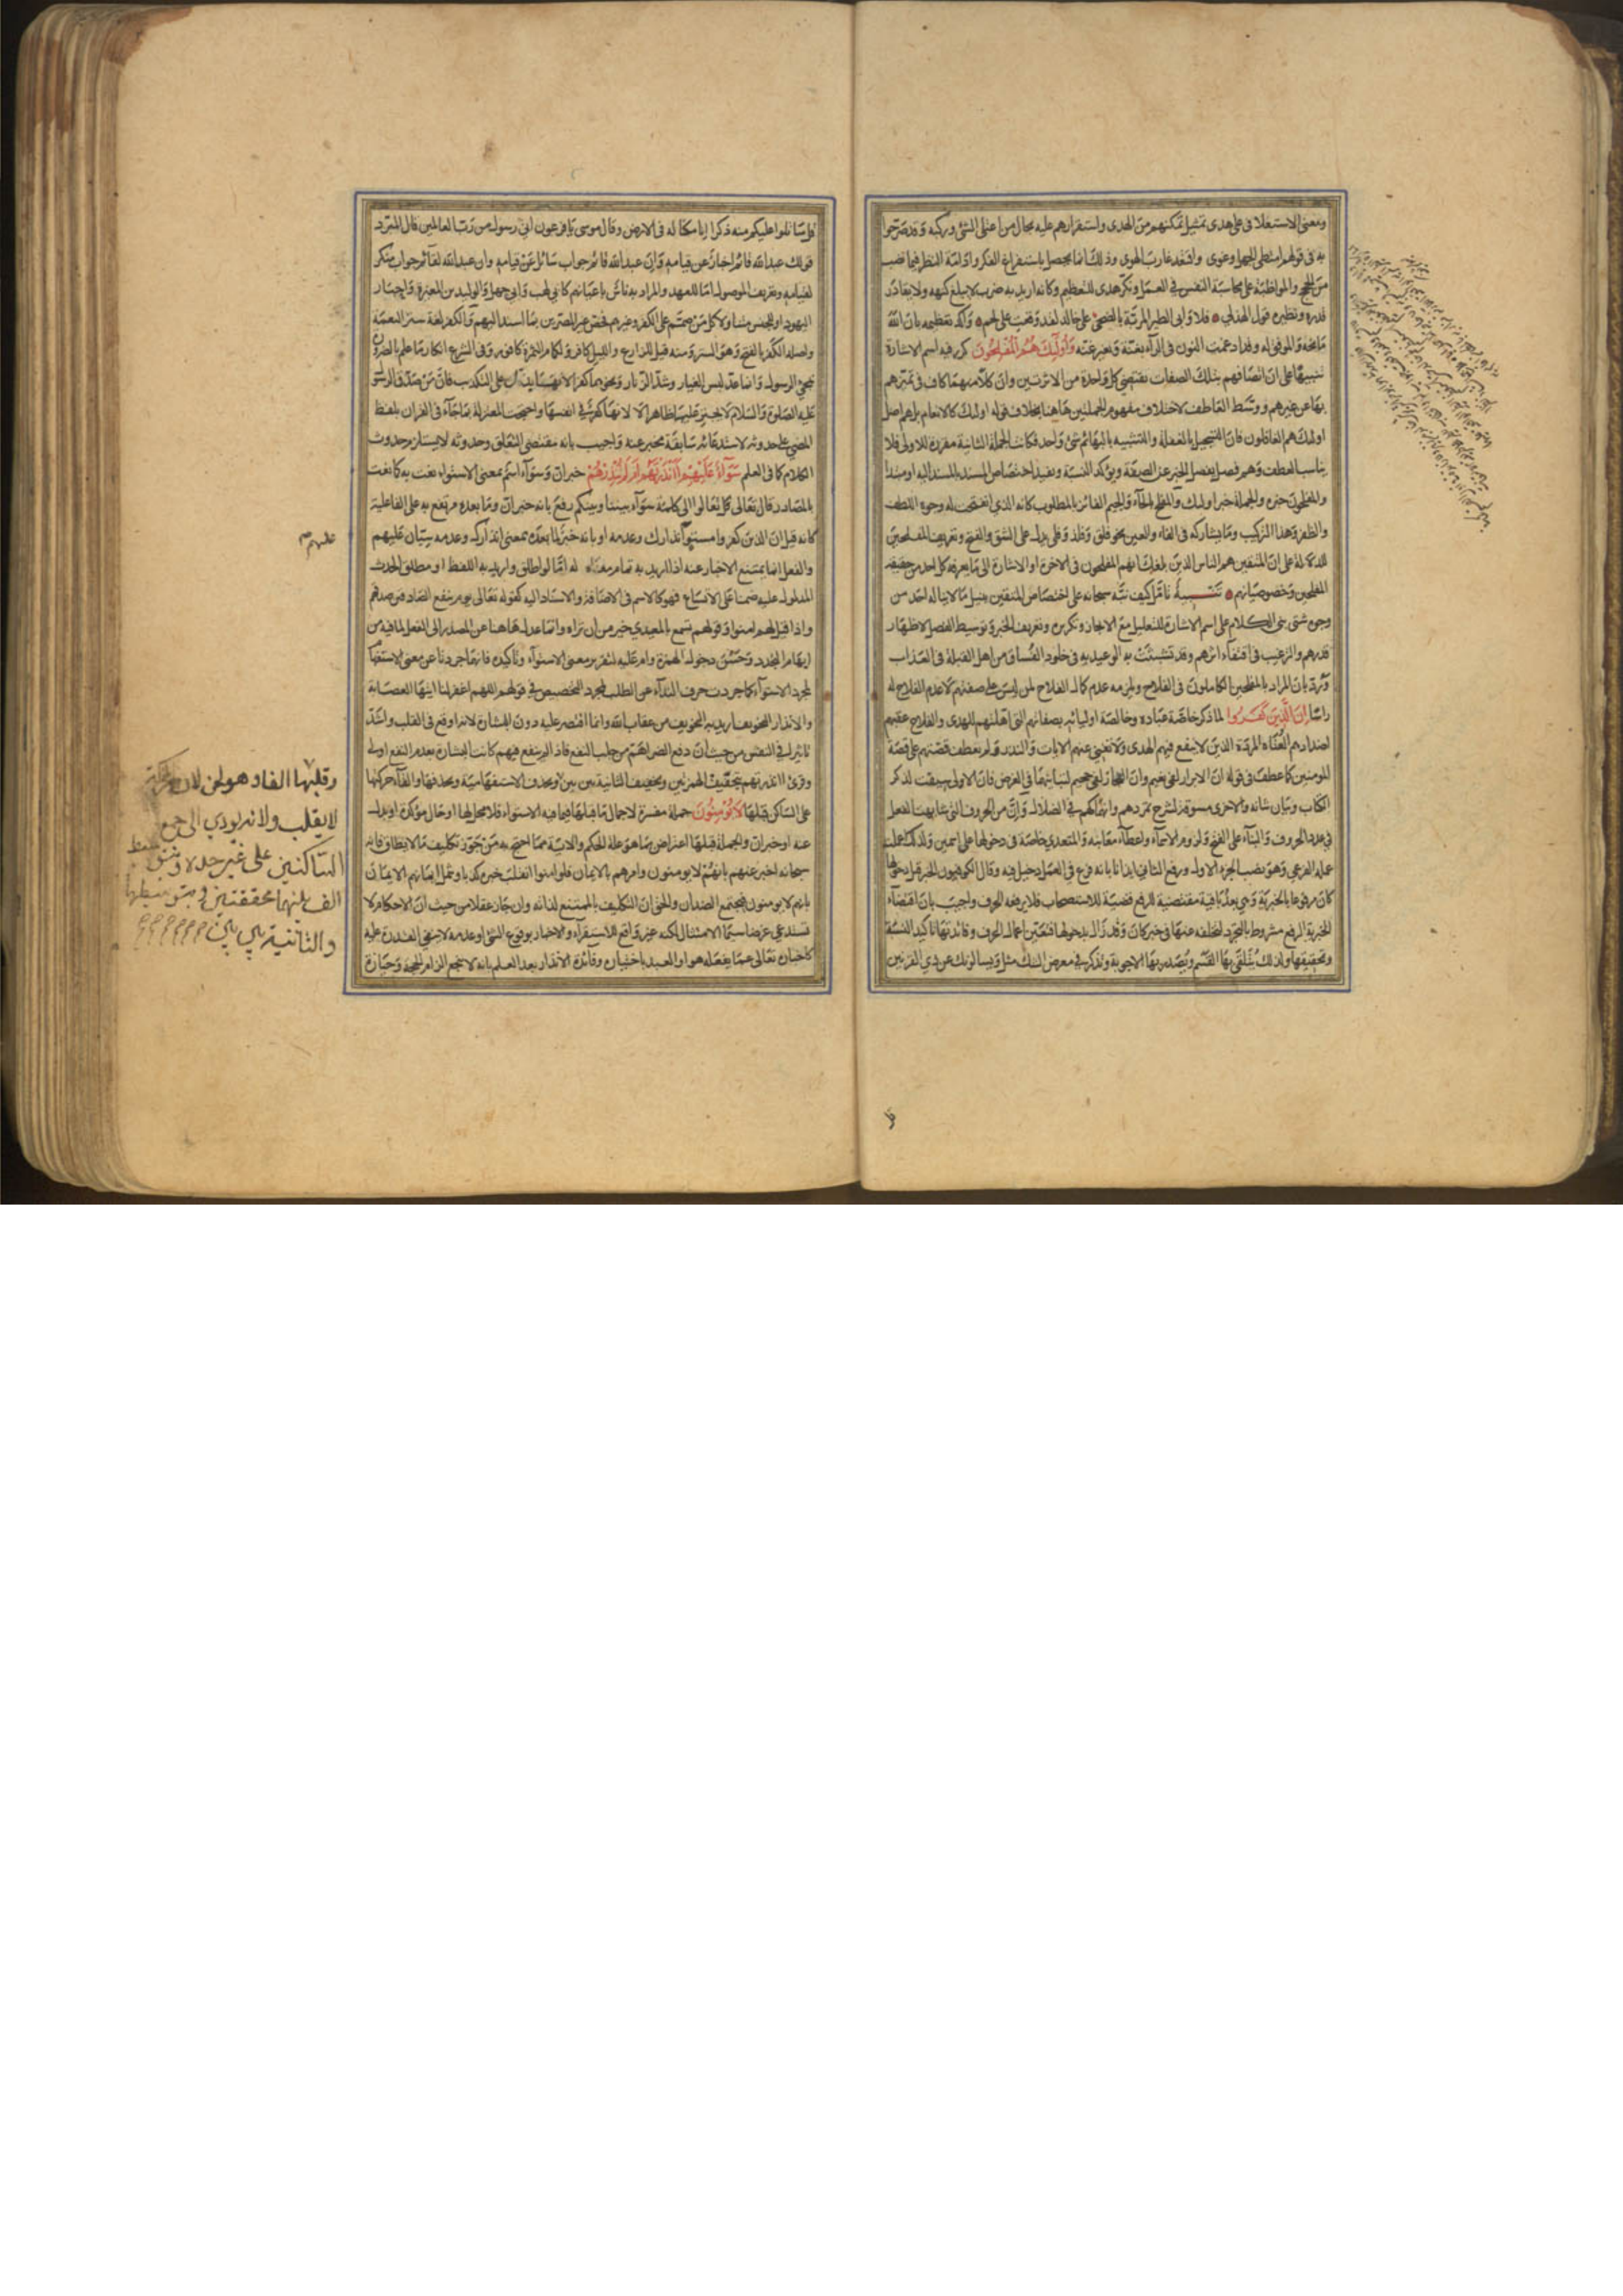 ومعنى الاستعلاء في على هدى تمثيل تمكنهم من الهدى واستقرارهم عليه بحال من اعتلى الشئ وركبه وقد صرحوا
به في قولهم امتطى الجهل وغوى واقتعد غارب الهوى وذلك انما يحصل باستفراغ الفكر وادامة النظر فيما نصب
من الحجج والمواظبة على محاسبة النفس في العمل ونكر هدى للتعظيم وكانه اريد به ضرب لا يبلغ كنهه ولا يقادر
قدره ونظيره قول الهذلي فلا وابي الطير المربة بالضحى على خالد لقد وقعت على لحم واكد تعظيمه بان الله
مانحه والموفق له وقد ادغمت النون في الرآء بغنة وبغير غنة وَأُولَٰئِكَ هُمُ الْمُفْلِحُونَ كرر فيه اسم الاشارة
تنبيها على ان اتصافهم بتلك الصفات يقتضي كل واحدة من الاثرتين وان كلا منهما كاف في تميزهم
بها عن غيرهم ووسط العاطف لاختلاف مفهوم الجملتين هاهنا بخلاف قوله اولئك كالانعام بل هم اضل
اولئك هم الغافلون فان التسجيل بالغفلة والتشبيه بالبهائم شئ واحد فكانت الجملة الثانية مقررة للاولى فلا
يناسب العطف وهم فصل يفصل الخبر عن الصفة ويؤكد النسبة ويفيد اختصاص المسند بالمسند اليه او مبتدأ
والمفلحون خبره والجملة خبر اولئك والمفلح بالحآء والجيم الفائز بالمطلوب كانه الذي انفتحت له وجوه
والظفر وهذا التركيب وما يشاركه في الفاء والعين نحو فلق وفلذ وفلى يدل على الشق والفتح وتعريف المفلحين
للدلالة على ان المتقين هم الناس الذين بلغك انهم المفلحون في الاخرة او الاشارة الى ما يعرفه كل احد من حقيقة
المفلحين وخصوصياتهم تنبيه تأمل كيف نبه سبحانه على اختصاص المتقين بنيل ما لا يناله احد من
وجوه شتى بنى الكلام على اسم الاشارة للتعليل مع الايجاز وتكريره وتعريف الخبر وتوسيط الفصل لاظهار
قدرهم والترغيب في اقتفاء اثرهم وقد تشبثت به الوعيدية في خلود الفساق من اهل القبلة في العذاب
ورد بان المراد بالمفلحين الكاملون في الفلاح ويلزمه عدم كمال الفلاح لمن ليس على صفتهم لا عدم الفلاح له
راسا إِنَّ الَّذِينَ كَفَرُوا لما ذكر خاصة عباده وخالصة اوليائه بصفاتهم التي اهلتهم للهدى والفلاح عقبهم
اضدادهم العتاة المردة الذين لا ينفع فيهم الهدى ولا تغني عنهم الايات والنذر ولم يعطف قصتهم على قصة
المومنين كما عطف في قوله ان الابرار لفي نعيم وان الفجار لفي جحيم لتباينهما في الغرض فان الاولى سيقت لذكر
الكتاب وبيان شانه والاخرى مسوقة لشرح تمردهم وانهماكهم في الضلال وان من الحروف التي شابهت الفعل
في عدد الحروف والبناء على الفتح ولزوم الاسماء واعطآء معانيه والمتعدي خاصة في دخولها على اسمين ولذلك اعملت
عمله الفرعي وهو نصب الجزء الاول ورفع الثاني ايذانا بانه فرع في العمل دخيل فيه وقال الكوفيون الخبر قبل دخولها
كان مرفوعا بالخبرية وهي بعد باقية مقتضية للرفع قضية للاستصحاب فلا يرفعه الحرف واجيب بان اقتضاء
الخبرية الرفع مشروط بالتجرد لتخلفه عنها في خبر كان وقد زال بدخولها فتعين اعمال الحرف وفائدتها تاكيد النسبة
وتحقيقها ولذلك يتلقى بها القسم ويصدر بها الاجوبة وتذكر في معرض الشك مثل ويسالونك عن ذي القرنين
قل سأتلوا عليكم منه ذكرا انا مكنا له في الارض وقال موسى يا فرعون اني رسول من رب العالمين قال المبرد
قولك عبد الله قائم اخبار عن قيامه وان عبد الله قائم جواب سائل عن قيامه وان عبد الله لقائم جواب منكر
لقيامه وتعريف الموصول اما للعهد والمراد به ناس باعيانهم كابي لهب وابي جهل والوليد بن المغيرة واحبار
اليهود او للجنس متناولا كل من صمم على الكفر وغيرهم فخص غير المصرين بما اسند اليهم والكفر لغة ستر النعمة
واصله الكفر بالفتح وهو الستر ومنه قيل للزارع والليل كافر ولكمام الثمرة كافور وفي الشرع انكار ما علم بالضرورة
مجئ الرسول وانما عد لبس الغيار وشد الزنار ونحوهما كفرا لانها تدل على التكذيب فان من صدق الرسول
عليه الصلوة والسلام لا يجترئ عليها ظاهرا لا لانها كفر في انفسها واحتجت المعتزلة بما جآء في القران بلفظ
المضي على حدوثه لاستدعائه سابقة مخبر عنه واجيب بانه مقتضى التعلق وحدوثه لا يستلزم حدوث
الكلام كما في العلم سَوَآءٌ عَلَيْهِمْ أَأَنْذَرْتَهُمْ أَمْ لَمْ تُنْذِرْهُمْ خبر ان وسوآء اسم بمعنى الاستواء نعت به كما نعت
بالمصادر قال تعالى قل تعالوا الى كلمة سوآء بيننا وبينكم رفع بانه خبر ان وما بعده مرتفع به على الفاعلية
كانه قيل ان الذين كفروا مستو انذارك وعدمه او بانه خبر لما بعده بمعنى انذارك وعدمه سيان عليهم
والفعل انما يمتنع الاخبار عنه اذا اريد به تمام ما وضع له اما لو اطلق واريد به اللفظ او مطلق الحدث
المدلول عليه ضمنا على الاتساع فهو كالاسم في الاضافة والاسناد اليه كقوله تعالى يوم ينفع الصادقين صدقهم
واذا قيل لهم امنوا وقولهم تسمع بالمعيدي خير من ان تراه وانما عدل هاهنا عن المصدر الى الفعل لما فيه من
ايهام التجدد وحسن دخول الهمزة وام عليه لتقرير معنى الاستوآء وتاكيده فانهما جردتا عن معنى الاستفهام
لمجرد الاستوآء كما جردت حرف الندآء عن الطلب لمجرد التخصيص في قولهم اللهم اغفر لنا ايتها العصابة
والانذار التخويف اريد به التخويف من عقاب الله وانما اقتصر عليه دون البشارة لانه اوقع في القلب واشد
تاثيرا في النفس من حيث ان دفع الضر اهم من جلب النفع فاذا لم ينفع فيهم كانت البشارة بعدم النفع اولى
وقرئ اانذرتهم بتحقيق الهمزتين وتخفيف الثانية بين بين وبحذف الاستفهامية وبحذفها والقاء حركتها
على الساكن قبلها لَا يُؤْمِنُونَ جملة مفسرة لاجمال ما قبلها فيما فيه الاستواء فلا محل لها او حال مؤكدة او بدل
عنه او خبر ان والجملة قبلها اعتراض بما هو علة الحكم والاية مما احتج به من جوز تكليف ما لا يطاق فانه
سبحانه اخبر عنهم بانهم لا يومنون وامرهم بالايمان فلو امنوا انقلب خبره كذبا وشمل ايمانهم الايمان
بانهم لا يومنون فيجتمع الضدان والحق ان التكليف بالممتنع لذاته وان جاز عقلا من حيث ان الاحكام لا
تستدعي غرضا سيما الامتثال لكنه غير واقع للاستقرآء والاخبار بوقوع الشئ او عدمه لا ينفي القدرة عليه
كاخباره تعالى عما يفعله هو او العبد باختياره وفائدة الانذار بعد العلم بانه لا ينجع الزام الحجة وحيازة
عليهم
وقلبها الفا وهو لحن لان
لا يقلب ولانه يودي الى جمع
الساكنين على غير حده
الف بينهما محققتين
والثانية بين بين